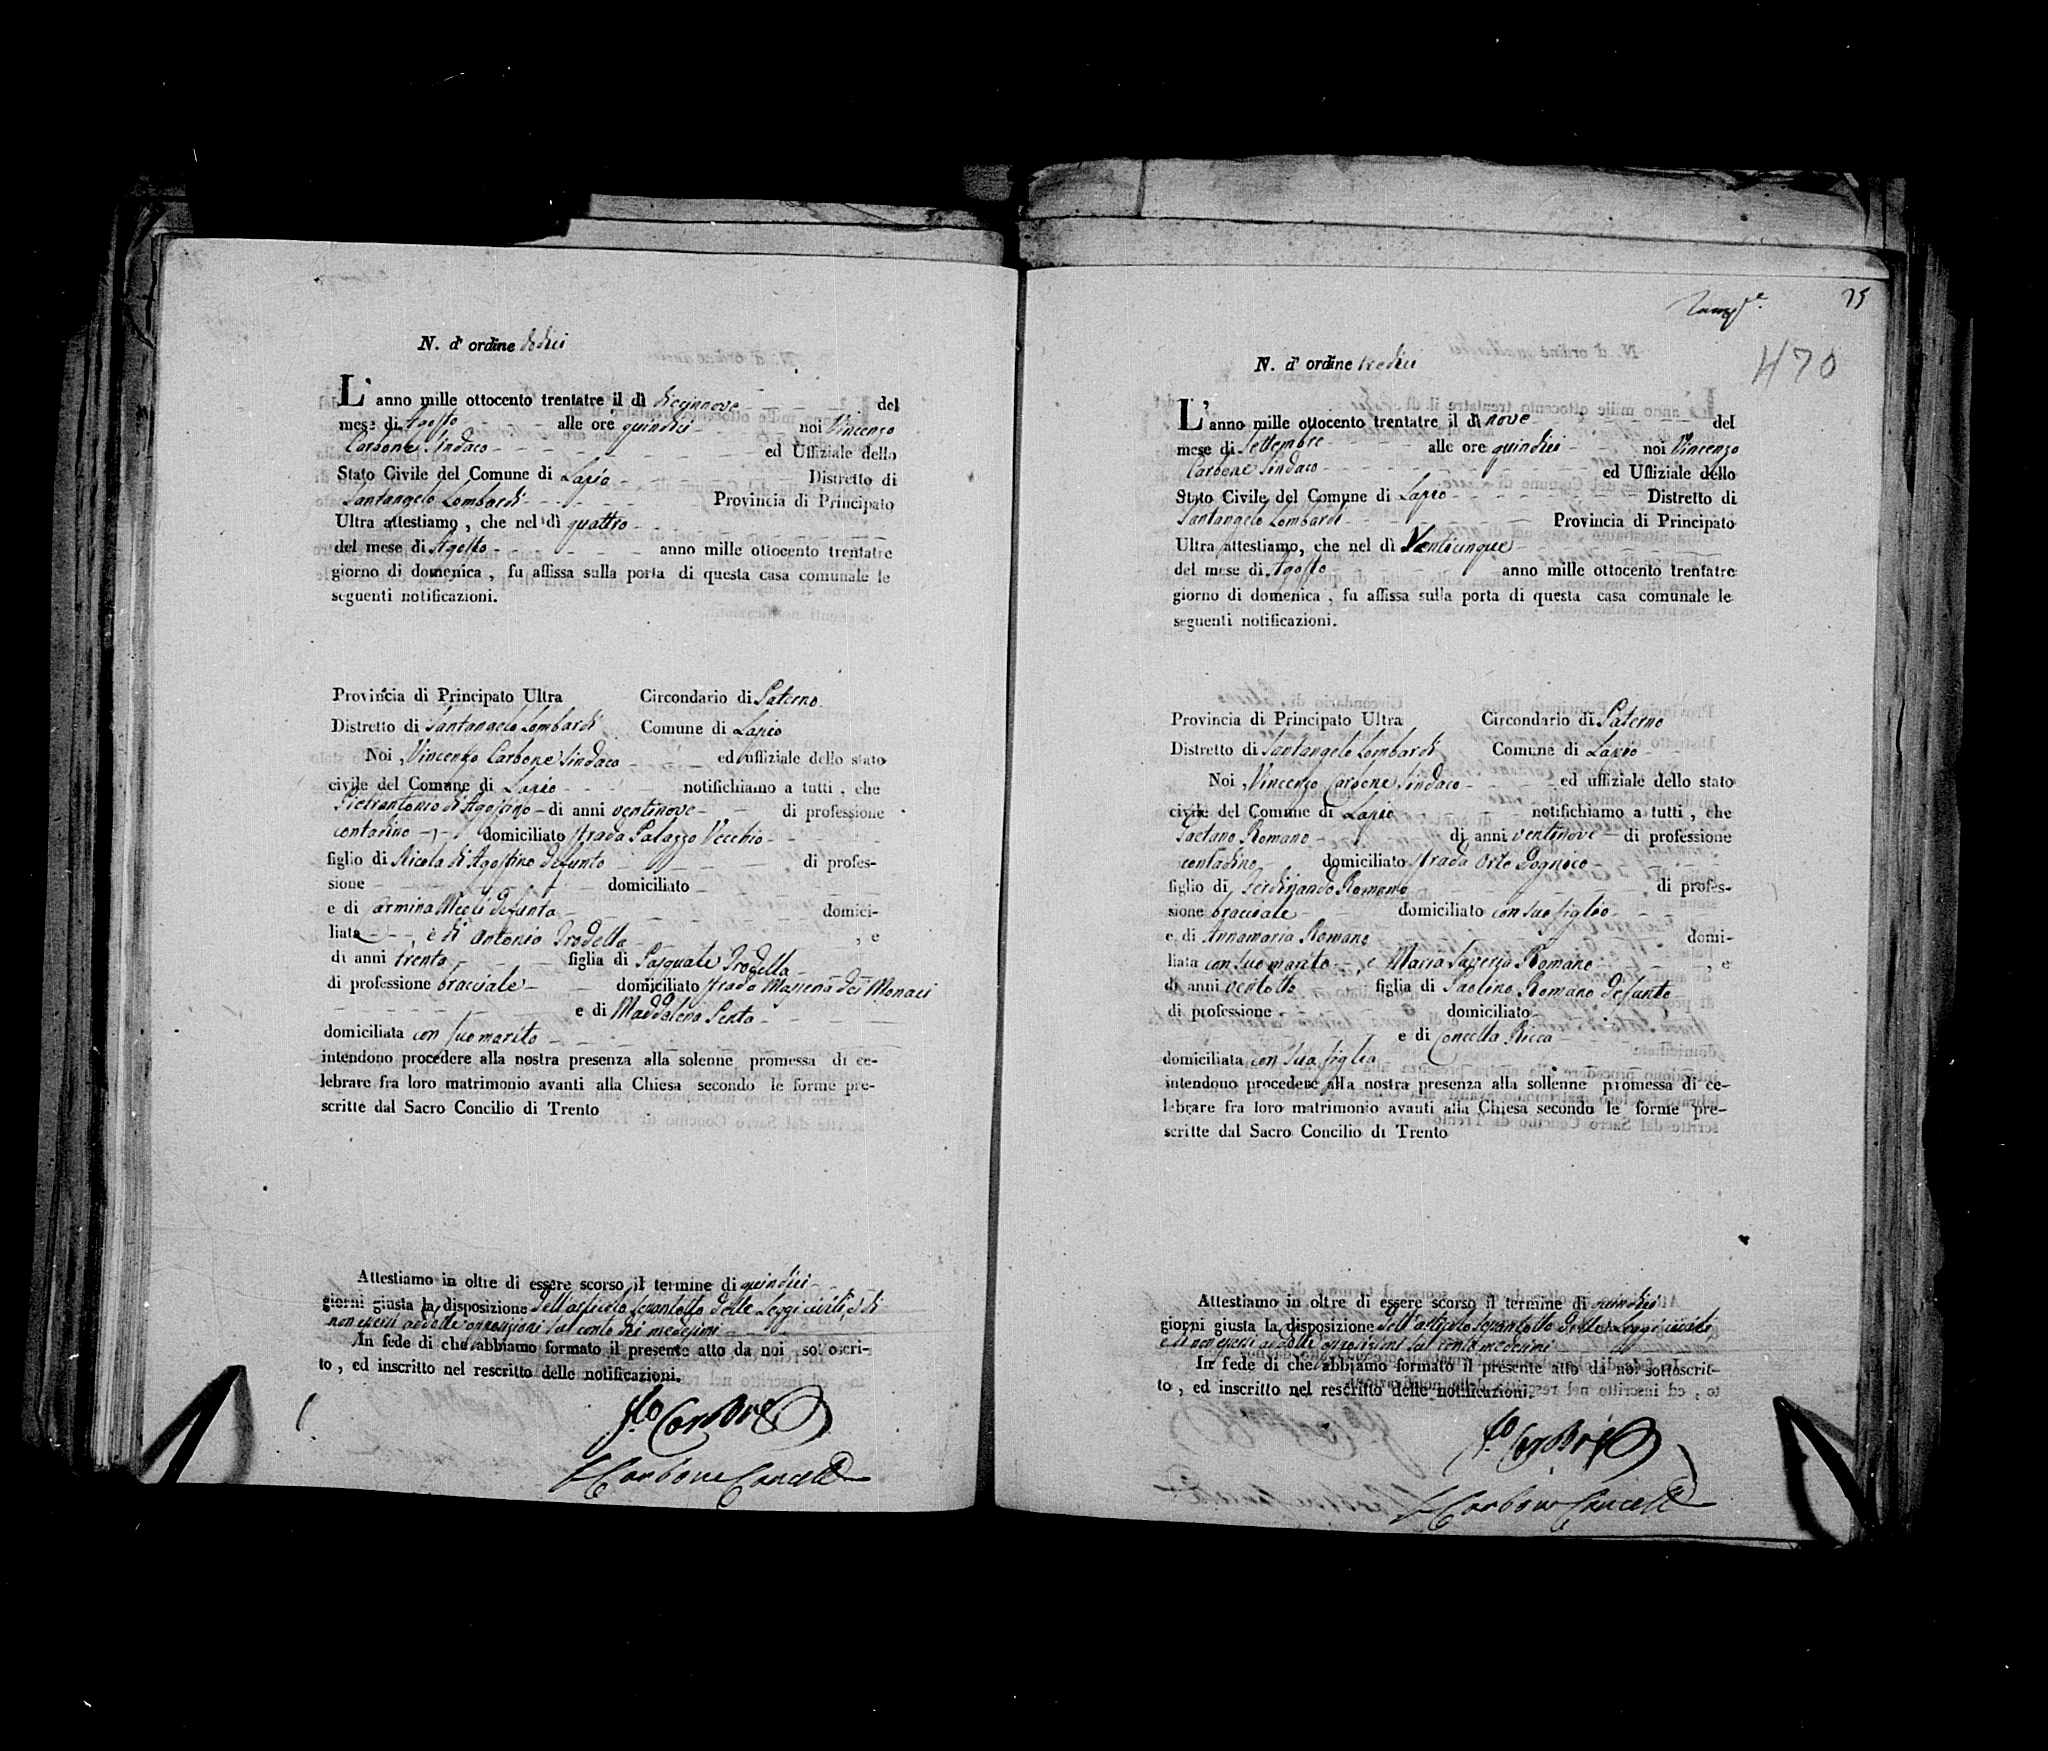 N. d' ordine dodici
L' anno mille ottocento trentatre il dì diecinnove del
mese di Agosto alle ore quindici noi Vincenzo
Carbone Sindaco ed Uffiziale dello
Stato Civile del Comune di Lapio Distretto di
Santangelo Lombardi Provincia di Principato
Ultra attestiamo, che nel dì quattro
del mese di Agosto anno mille ottocento trentatre
giorno di domenica, fu affissa sulla porta di questa casa comunale le
seguenti notificazioni.
Provincia di Principato Ultra Circondario di Paterno
Distretto di Santangelo Lombardi Comune di Lapio
Noi Vincenzo Carbone Sindaco ed uffiziale dello stato
civile del Comune di Lapio notifichiamo a tutti, che
Pietrantonio di Agostino di anni ventinove di professione
contadino domiciliato strada Palazzo Vecchio
figlio di Nicola di Agostino defunto di profes-
sione domiciliato
e di Carmina defunta domici-
liata, e di Antonia Trodella, e
di anni trenta figlia di Pasquale Trodella
di professione bracciale domiciliato strada dei Monaci
e di Maddalena
domiciliata con suo marito
intendono procedere alla nostra presenza alla solenne promessa di ce-
lebrare fra loro matrimonio avanti alla Chiesa secondo le forme pre-
scritte dal Sacro Concilio di Trento
Attestiamo in oltre di essere scorso il termine di quindici
giorni giusta la disposizione dell'articolo sessantotto delle Leggi civili, e di
non essersi addotte opposizioni sul conto dei medesimi
In fede di che abbiamo formato il presente atto da noi sottoscri-
to, ed inscritto nel rescritto delle notificazioni.
Carbone
Carbone Cancell
75
470
N. d' ordine tredici
L' anno mille ottocento trentatre il dì nove del
mese di Settembre alle ore quindici noi Vincenzo
Carbone Sindaco ed Uffiziale dello
Stato Civile del Comune di Lapio Distretto di
Santangelo Lombardi Provincia di Principato
Ultra attestiamo, che nel dì Venticinque
del mese di Agosto anno mille ottocento trentatre
giorno di domenica, fu affissa sulla porta di questa casa comunale le
seguenti notificazioni.
Provincia di Principato Ultra Circondario di Paterno
Distretto di Santangelo Lombardi Comune di Lapio
Noi Vincenzo Carbone Sindaco ed uffiziale dello stato
civile del Comune di Lapio notifichiamo a tutti, che
Gaetano Romano di anni ventinove di professione
contadino domiciliato strada Orto
figlio di Ferdinando Romano di profes-
sione bracciale domiciliato con suo figlio
e di Annamaria Romano domi-
liata con suo marito, e Maria Saveria Romano, e
di anni ventotto figlia di Paolino Romano defunto
di professione domiciliato
e di Concetta Ricca
domiciliata con sua figlia
intendono procedere alla nostra presenza alla sollenne promessa di ce-
lebrare fra loro matrimonio avanti alla Chiesa secondo le forme pre-
scritte dal Sacro Concilio di Trento
Attestiamo in oltre di essere scorso il termine di quindici
giorni giusta la disposizione dell'articolo sessantotto delle Leggi civili
e di non essersi addotte opposizioni sul conto medesimi
In fede di che abbiamo formato il presente atto da noi sottoscrit-
to, ed inscritto nel rescritto delle notificazioni.
Carbone
Carbone Cancell